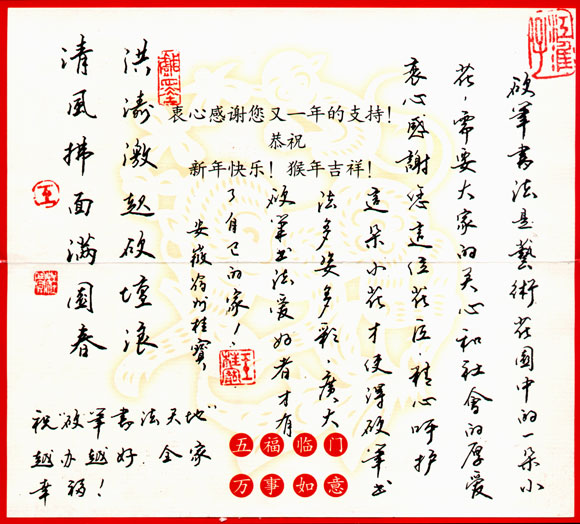 硬筆書法是藝術花園中的一朵小
花，需要大家的关心和社會的厚爱
衷心感謝您這位花匠.精心呵护
這朵小花才使得硬筆书
法多姿多彩，廣大
硬筆书法爱好者才有
了自己的家！
安徽宿州桂寶
洪濤激起硬壇浪
清風拂面滿園春
衷心感谢您又一年的支持！
恭祝
新年快乐！猴年吉祥！
祝"硬筆書法天地"
越办越好.全家
幸福！
五福临门
万事如意